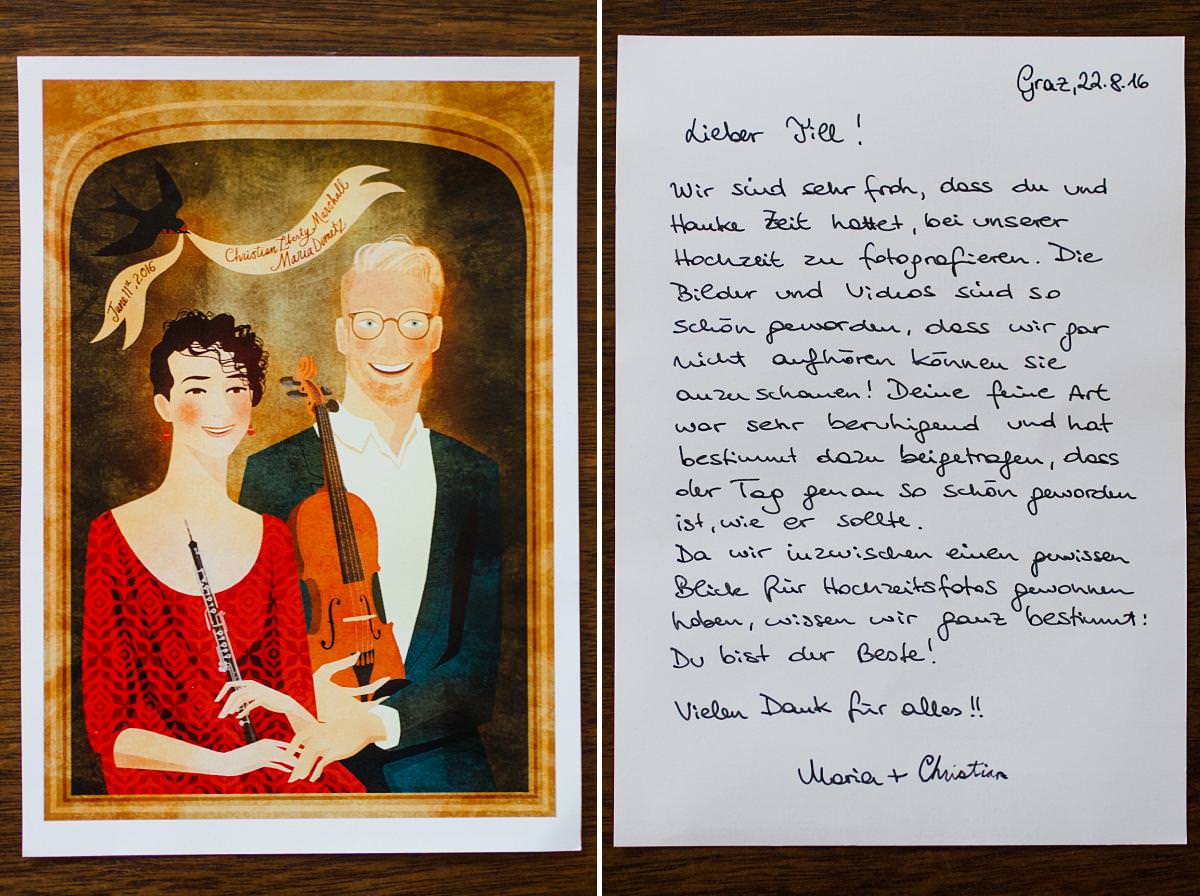 June 11th, 2016
Christian Liberty Marshall
Maria
Graz, 22.8.16
Lieber Till!
Wir sind sehr froh, dass du und
Hauke Zeit hattet, bei unserer
Hochzeit zu fotografieren. Die
Bilder und Videos sind so
schön geworden, dass wir gar
nicht aufhören können sie
anzuschauen! Deine feine Art
war sehr beruhigend und hat
bestimmt dazu beigetragen, dass
der Tag genau so schön geworden
ist, wie er sollte.
Da wir inzwischen einen gewissen
Blick für Hochzeitsfotos gewonnen
haben, wissen wir ganz bestimmt:
Du bist der Beste!
Vielen Dank für alles!!
Maria + Christian